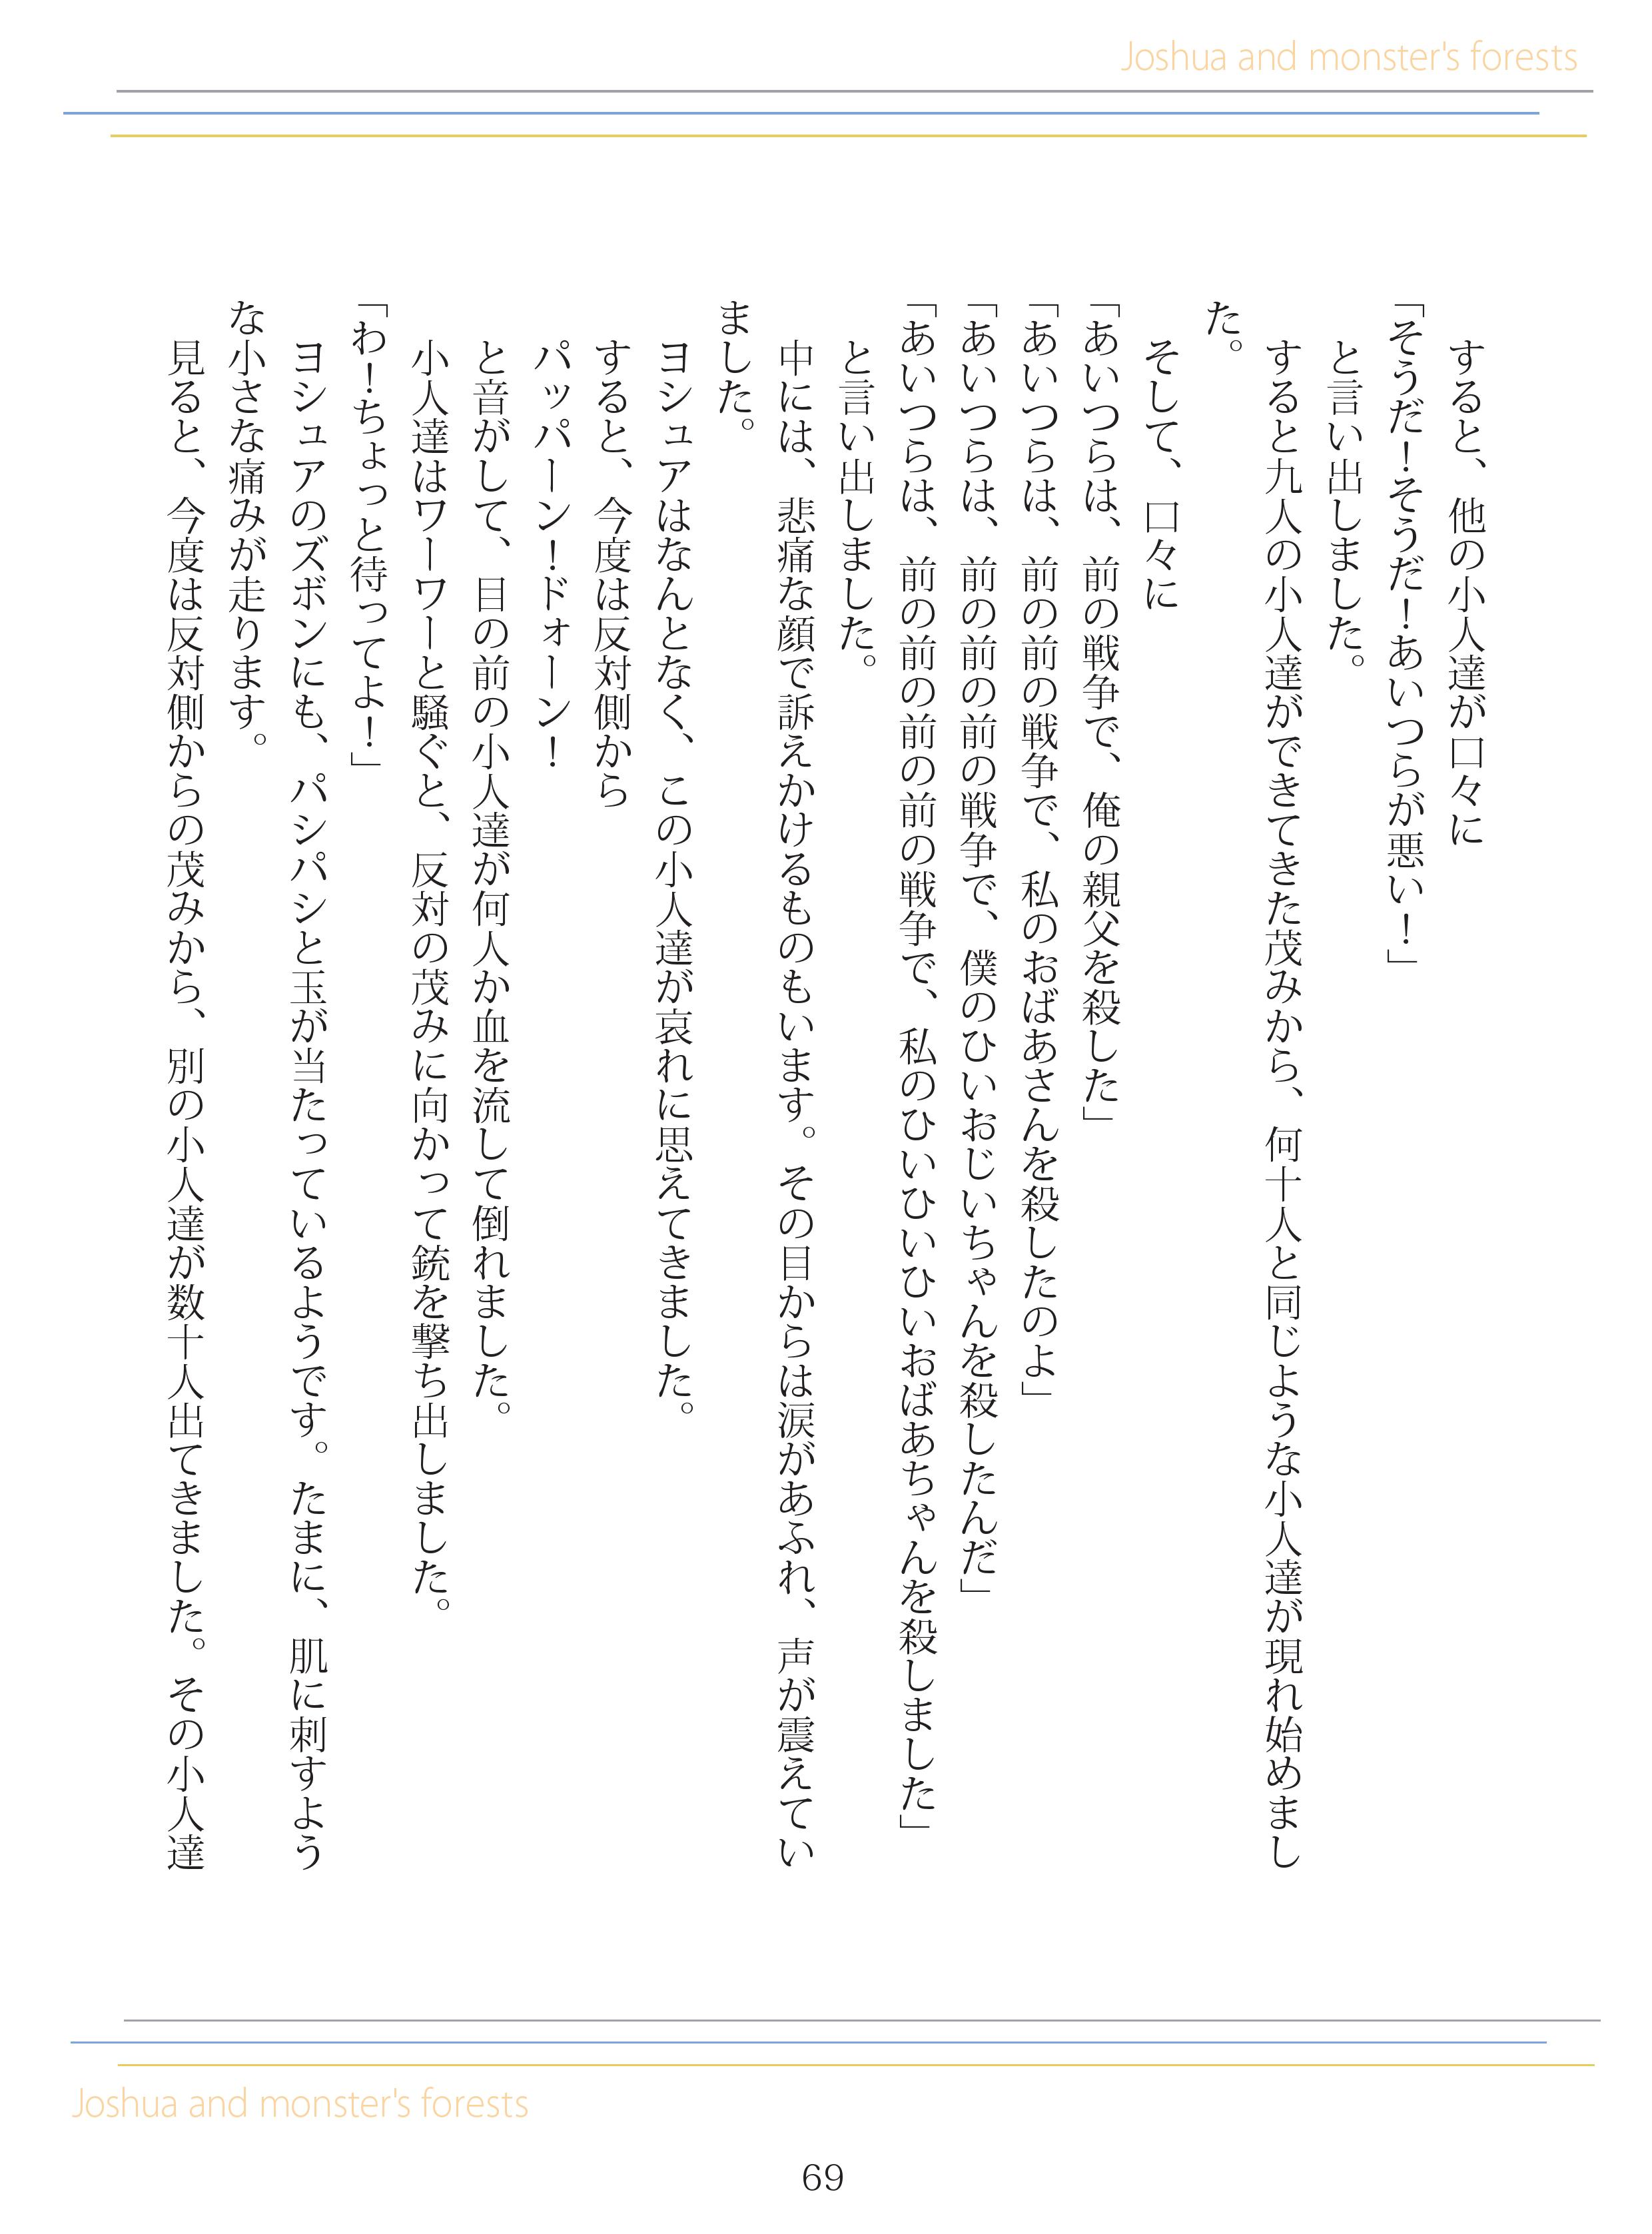 Joshua and monster's forests
すると、他の小人達が口々に
「そうだ！そうだ！あいつらが悪い！」
と言い出しました。
すると九人の小人達がでてきた茂みから、何十人と同じような小人達が現れ始めまし
た。
そして、口々に
「あいつらは、前の戦争で、俺の親父を殺した」
「あいつらは、前の前の戦争で、私のおばあさんを殺したのよ」
「あいつらは、前の前の前の戦争で、僕のひいおじいちゃんを殺したんだ」
「あいつらは、前の前の前の前の前の戦争で、私のひいひいひいおばあちゃんを殺しました」
と言い出しました。
中には、悲痛な顔で訴えかけるものもいます。その目からは涙があふれ、声が震えてい
ました。
ヨシュアはなんとなく、この小人達が哀れに思えてきました。
すると、今度は反対側から
パッパーン！ドォーン！
と音がして、目の前の小人達が何人か血を流して倒れました。
小人達はワーワーと騒ぐと、反対の茂みに向かって銃を撃ち出しました。
「わ！ちょっと待ってよ！」
ヨシュアのズボンにも、パシパシと玉が当たっているようです。たまに、肌に刺すよう
な小さな痛みが走ります。
見ると、今度は反対側からの茂みから、別の小人達が数十人出てきました。その小人達
Joshua and monster's forests
69